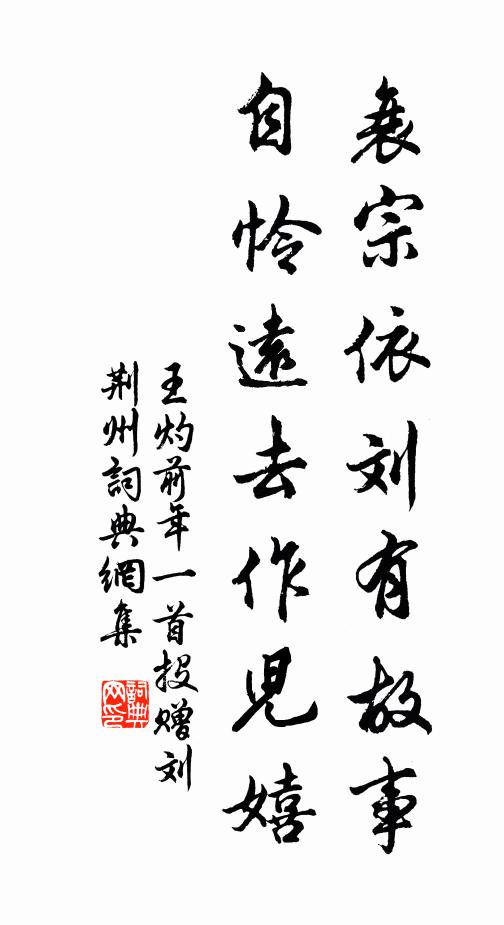 衰宗依刘有故事
自怜遠去作児嬉
王灼前年一首投赠刘
荆州詞典網集
詞典网印